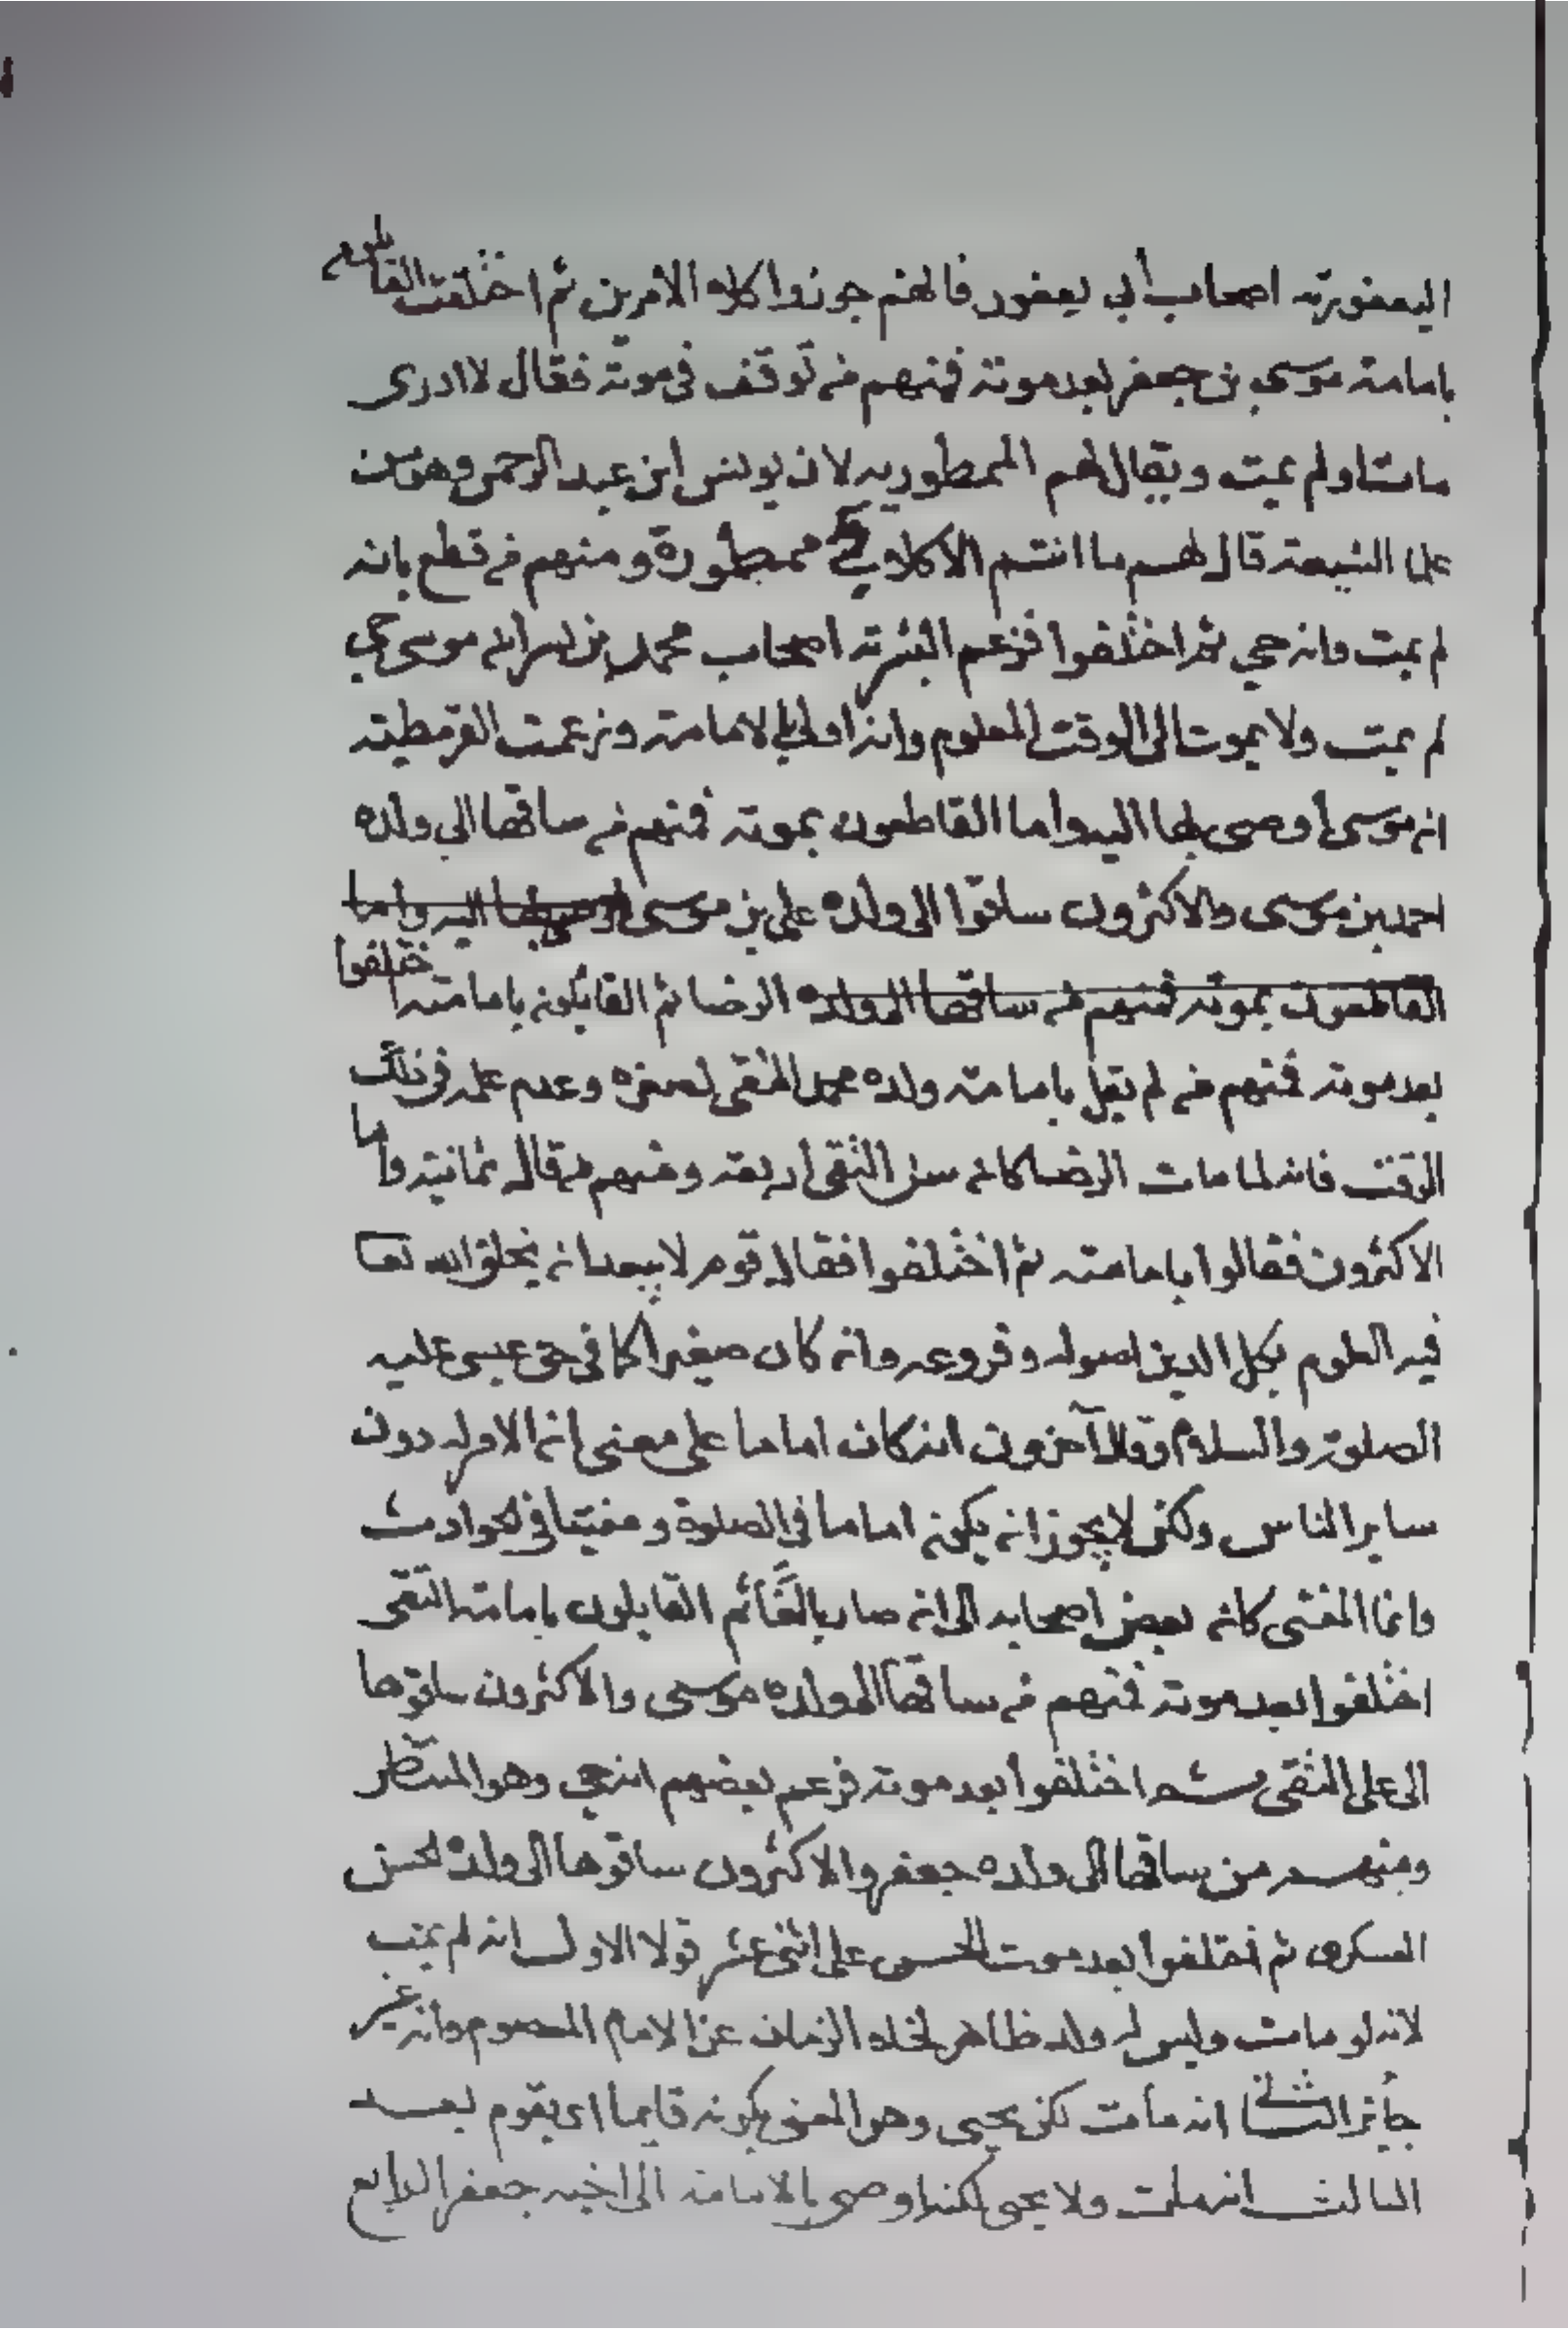 اليعفورية اصحاب أبي يعفور فانهم جوزوا كلاه الامرين ثم اختلفت القائلون
بامامة موسى بن جعفر بعد موته فمنهم من توقف في موته فقال لا ادرى
مات اولم يمت ويقال لهم الممطوريه لان يونس ابن عبد الرحمن وهو من
علما الشيعة قال لهم ما انتم الا كلاب ممطورة ومنهم من قطع بانه
لم يمت وانه حي ثم اختلفوا فزعم البشرية اصحاب محمد بن بسر انه موسى حي
لم يمت ولا يموت الى الوقت المعلوم وانه اولى بالامامة وزعمت القرمطية
انه موسى أوصى بها اليه واما القاطعون بموته فمنهم من ساقها الى ولده
احمد بن موسى والاكثرون ساقوا الى ولده علي بن موسى اوصى بها اليه واما
القاطعون بموته فمنهم من ساقها الى ولده الرضا ثم القائلونه بامامته اختلفوا
بعد موته فمنهم من لم يقل بامامة ولده محمد التقى لصغره وعدم علمه في ذلك
الوقت فانه لما مات الرضا كانه سن التقى اربعة ومنهم من قال ثمانية واما
الاكثرون فقالوا بامامته ثم اختلفوا فقال قوم لا يبعد انه يخلق الله تعا
فيه العلوم بكل الدين اصوله وفروعه وانه كان صغيرا كما في حق عيسى عليه
الصلوة والسلام وقال آخرون انه كان اماما على معنى انما الامر له دون
ساير الناس ولكن لا يجوز انه يكونه اماما في الصلوة ومفتيا في الحوادث
وانما المفتى كانه بعض اصحابه الى انه صار بالغا ثم القايلون بامامة التقى
اختلفوا بعد موته فمنهم من ساقها الى ولده موسى والاكثرون ساقوها
الى على النقى ثم اختلفوا بعد موته فزعم بعضهم انه حي وهو المنتظر
ومنهم من ساقها الى ولده جعفر والاكثرون ساقوها الى ولده الحسن
العسكرى ثم اختلفوا بعد موت الحسن على اثنى عشر قولا الاول انه لم يمت
لانه لو مات وليس له ولد ظاهر لخلا الزمان عن الامام المعصوم وانه غير
جائز الثاني انه مات لكن يحيى وهو المعنى بكونه قايما اى يقوم بعد
الثالث انه مات ولا يحيى لكنه اوصى بالامامة الى اخيه جعفر الرابع